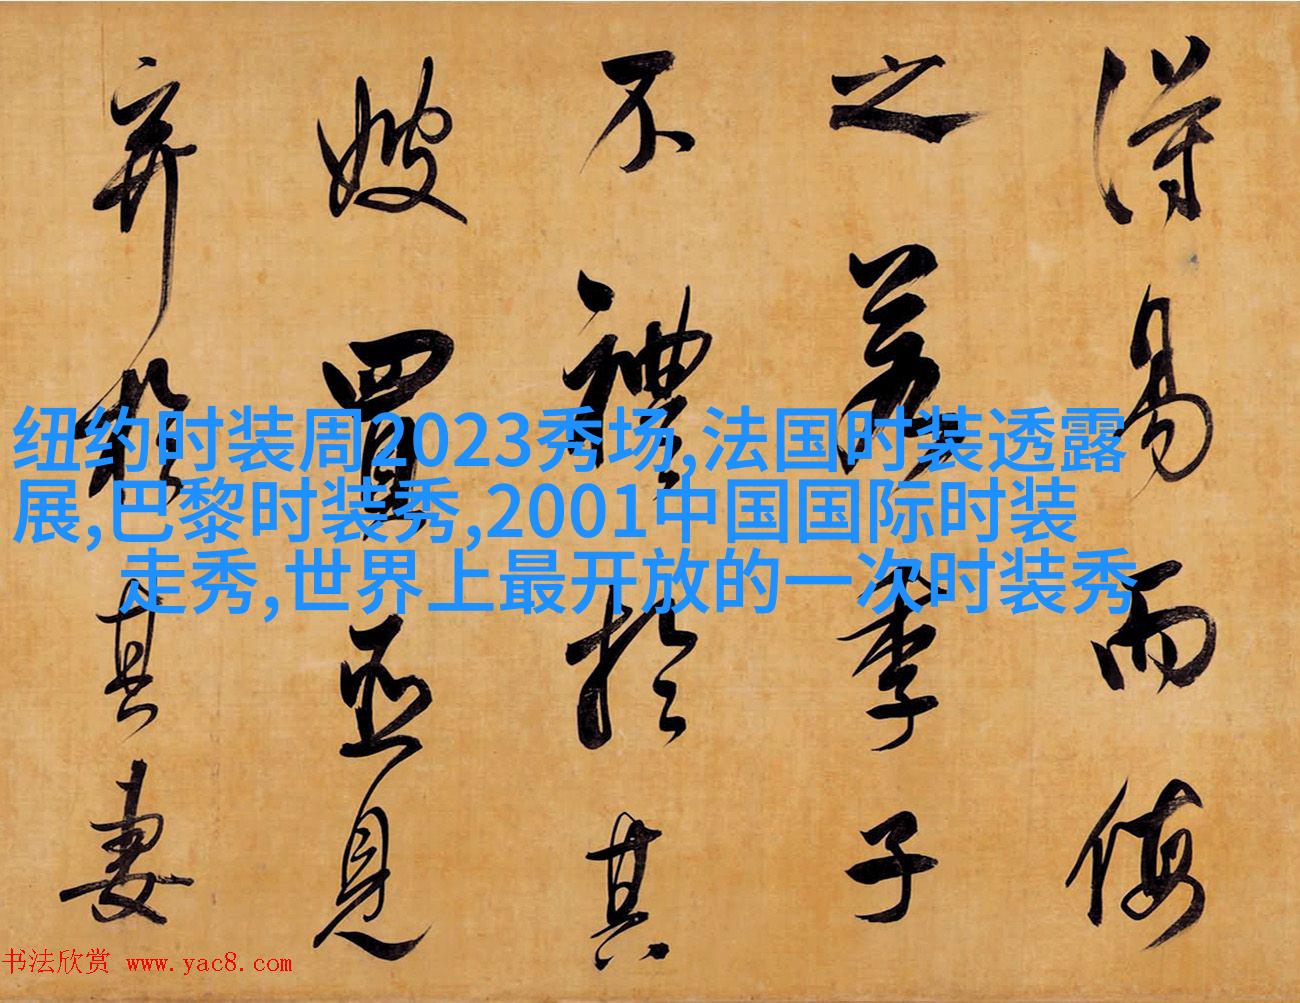 得易而侮
之若季子
不禮於其
嫂買臣見
弃於其妻
纽约时装周2023秀场,法国时装透露
展,巴黎时装秀,2001中国国际时装
走秀,世界上最开放的一次时装秀
书法欣赏 www.yac8.com